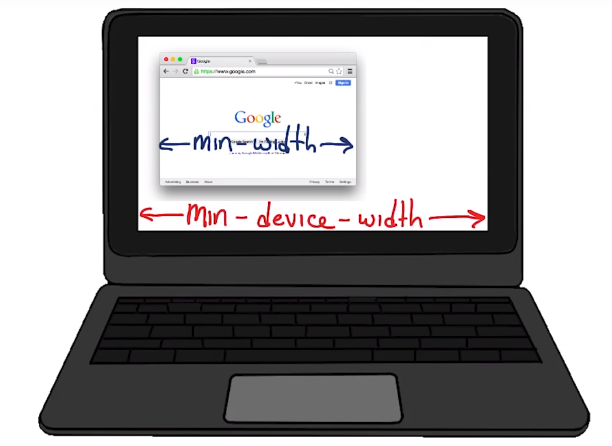 Google
https://www.google.com
Sign in
Google
min-width
Advertising Business About
Privacy Terms Settings
min-device-width